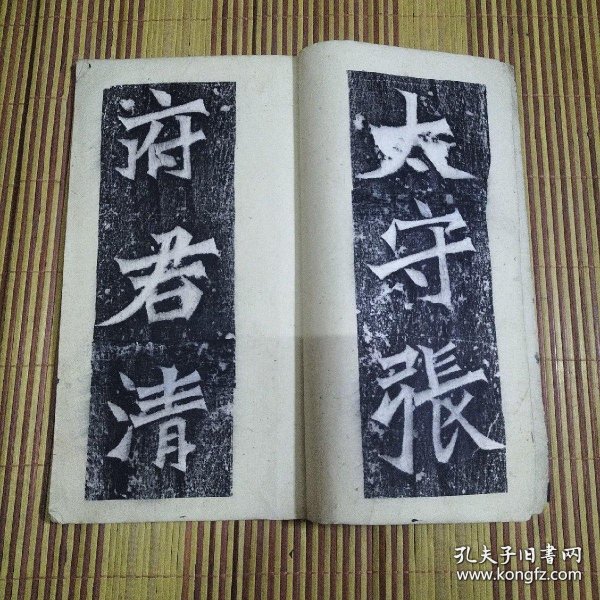 太守張
府君清
孔夫子旧書网
www.kongfz.com